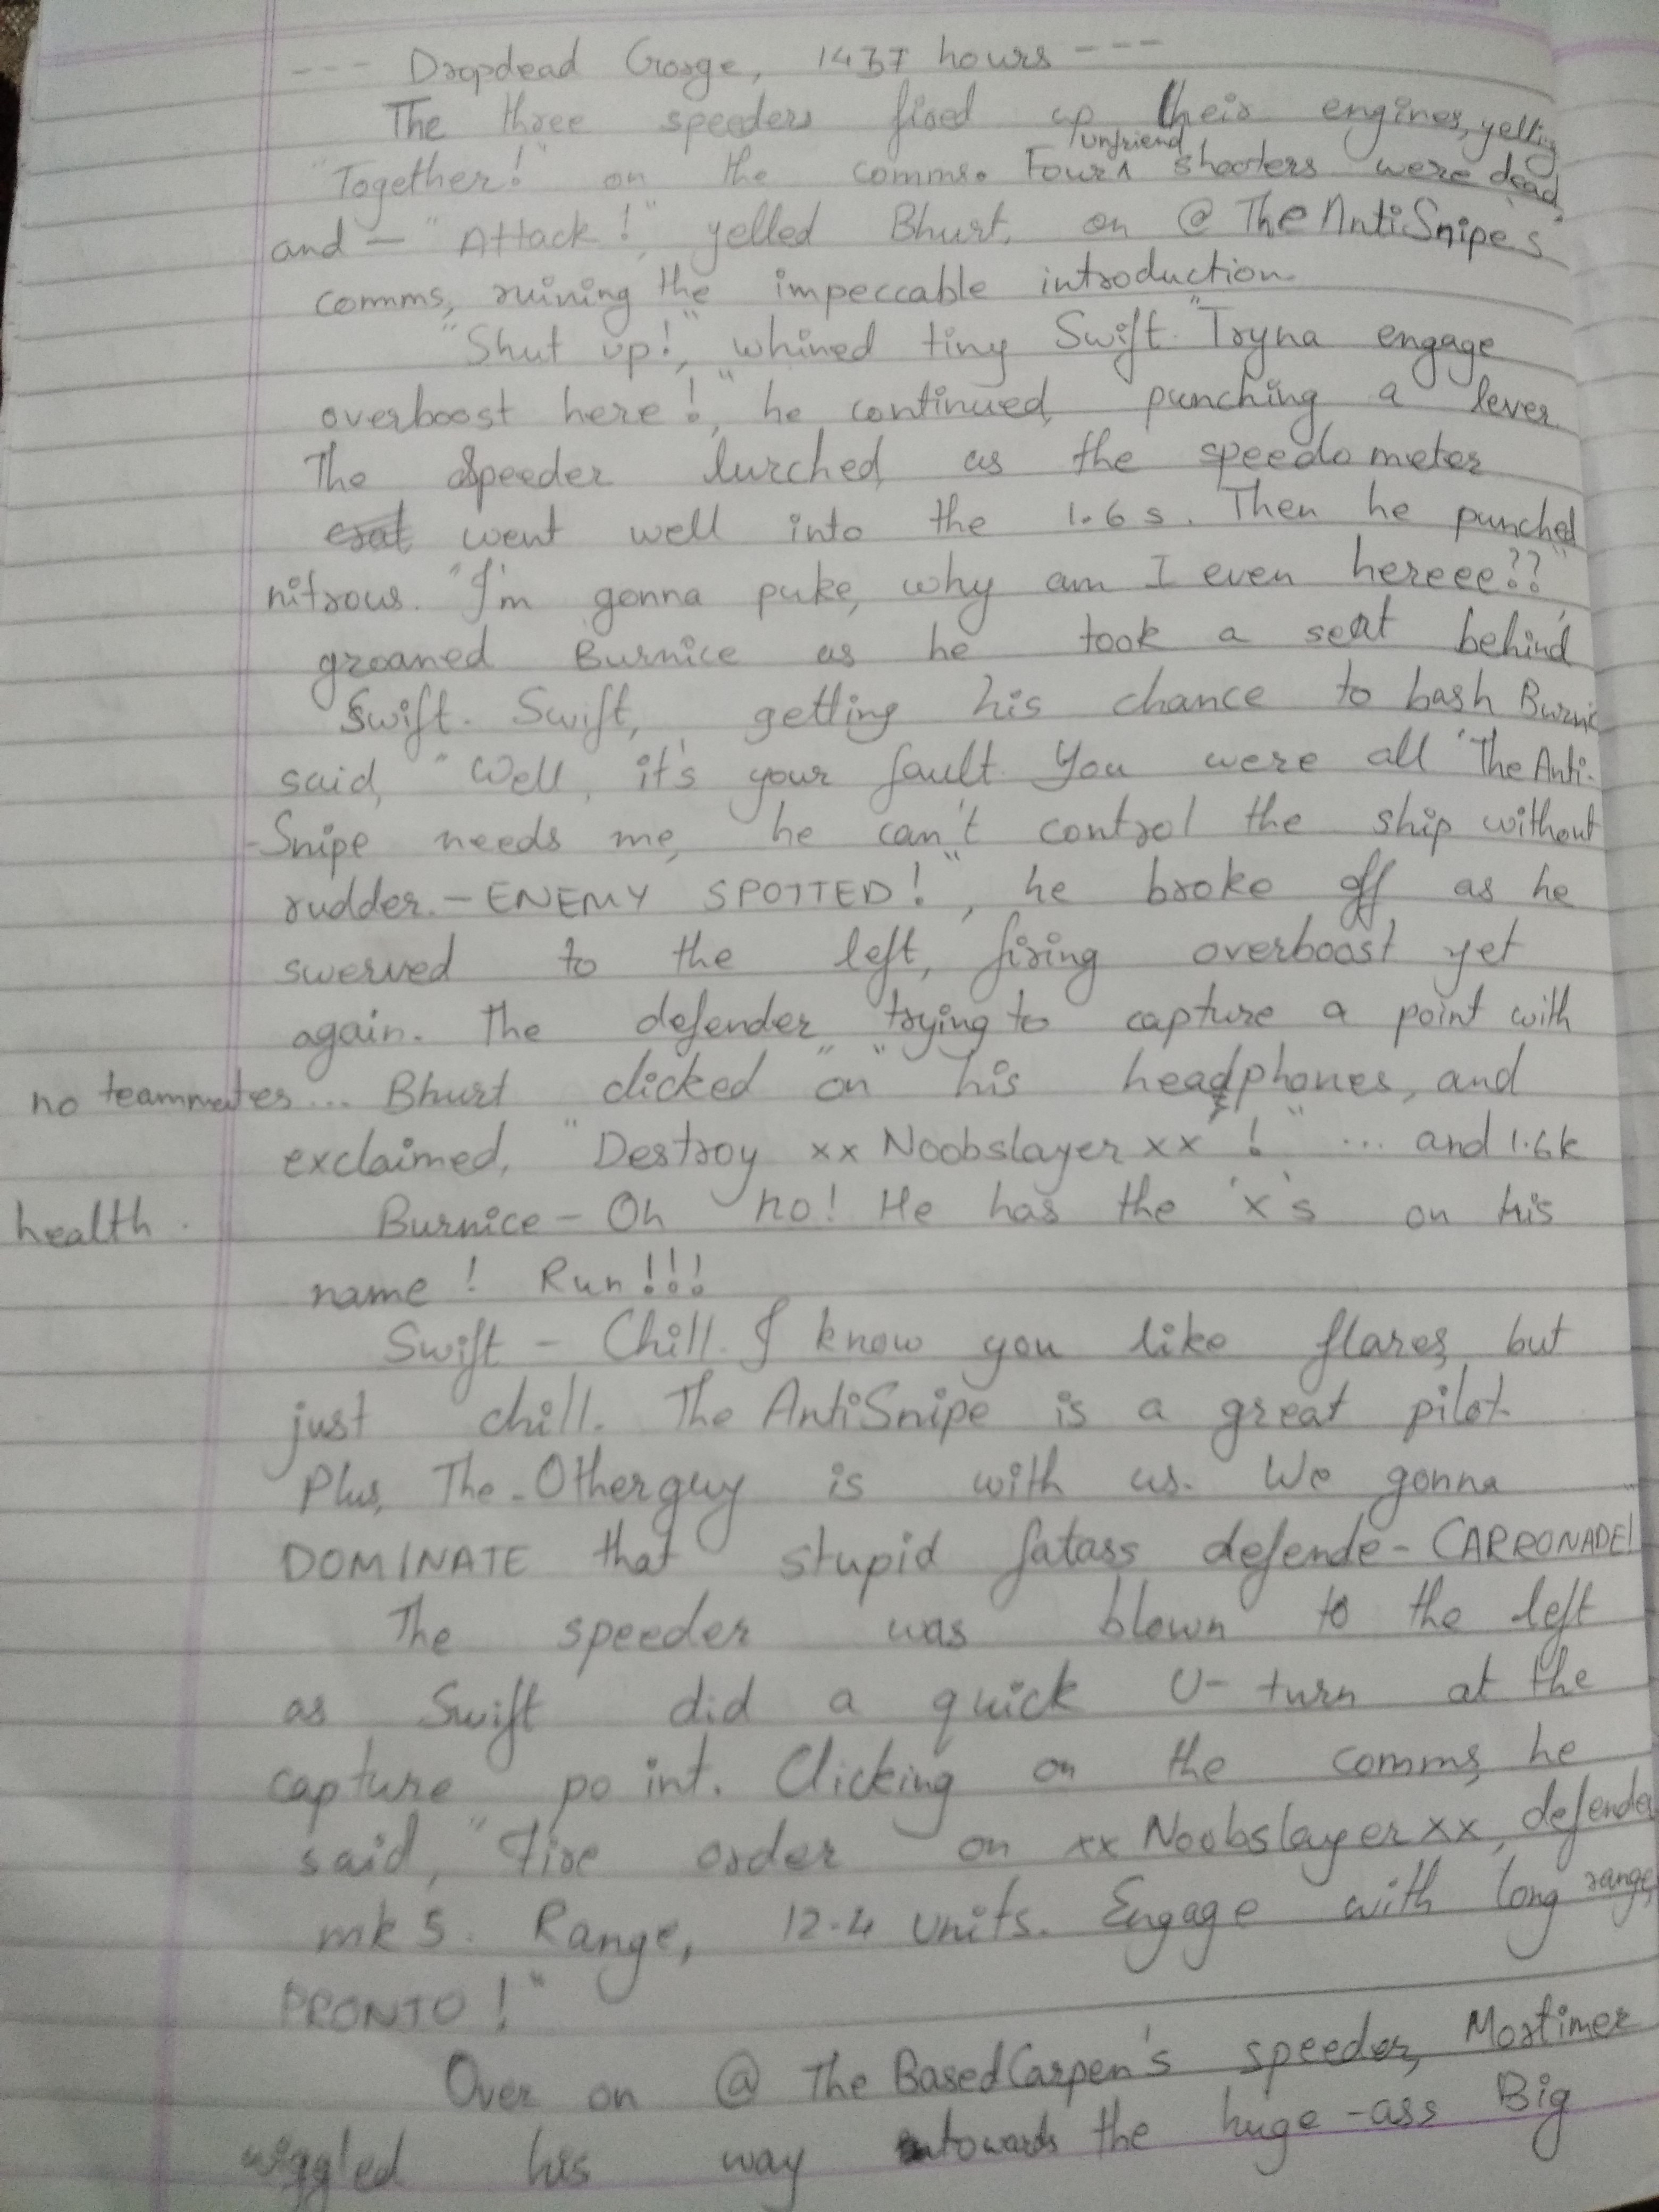 --- Dropdead Gorge, 1437 hours ---
The three speeders fired up their engines, yelling
"Together!" on the comms. Four unfriend shooters were dead,
and — "Attack!", yelled Bhurt, on @TheAntiSnipe's
comms, ruining the impeccable introduction.
"Shut up!", whined tiny Swift. "Tryna engage
overboost here!", he continued, punching a lever.
The speeder lurched, as the speedometer
went well into the 1.6s. Then he punched
nitrous. "I'm gonna puke, why am I even hereee??",
groaned Burnice as he took a seat behind
Swift. Swift, getting his chance to bash Burnic
said, "Well, it's your fault. You were all 'The Anti-
-Snipe needs me, he can't control the ship without
rudder. — ENEMY SPOTTED!", he broke off as he
swerved to the left, firing overboost yet
again. The defender "trying to capture a point with
no teammates... Bhurt clicked "on" his headphones, and
exclaimed, "Destroy xxNoobslayerxx!" ... and 1.6k
health. Burnice - Oh no! He has the 'x's on his
name! Run!!!
Swift - Chill. I know you like flares, but
just chill. The AntiSnipe is a great pilot.
Plus, The_Otherguy is with us. We gonna
DOMINATE that stupid fatass defende- CARRONADE!
The speeder was blown to the left
as Swift did a quick U-turn at the
capture point. Clicking on the comms, he
said, "Fire order on xxNoobslayerxx, defender
mk 5. Range, 12.4 units. Engage with long range,
PRONTO!"
Over on @TheBasedCarpen's speeder, Mortimer
wiggled his way towards the huge-ass Big